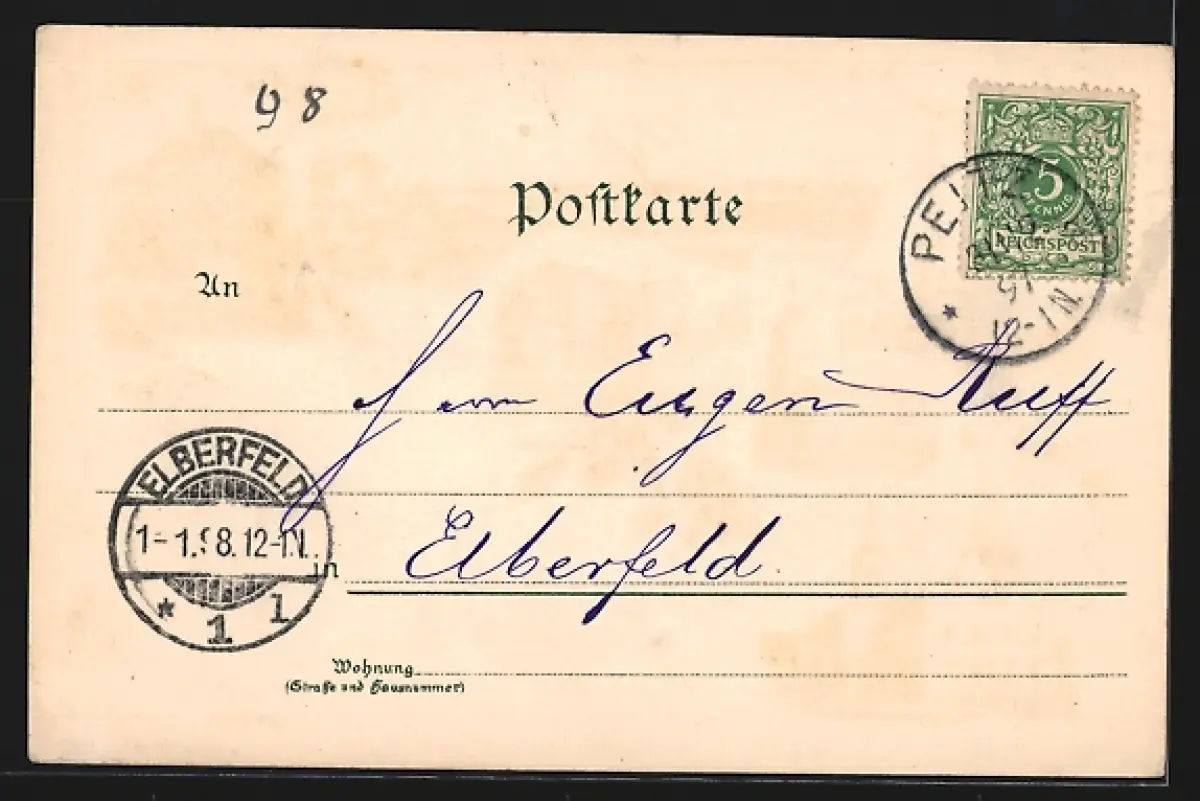 98
Postkarte
5
PFENNIG
REICHSPOST
PEITZ
12-1N.
An
Herrn Eugen Ruff
ELBERFELD
1-1.98.12-1N.
* 1 1
in Elberfeld.
Wohnung
(Straße und Hausnummer)